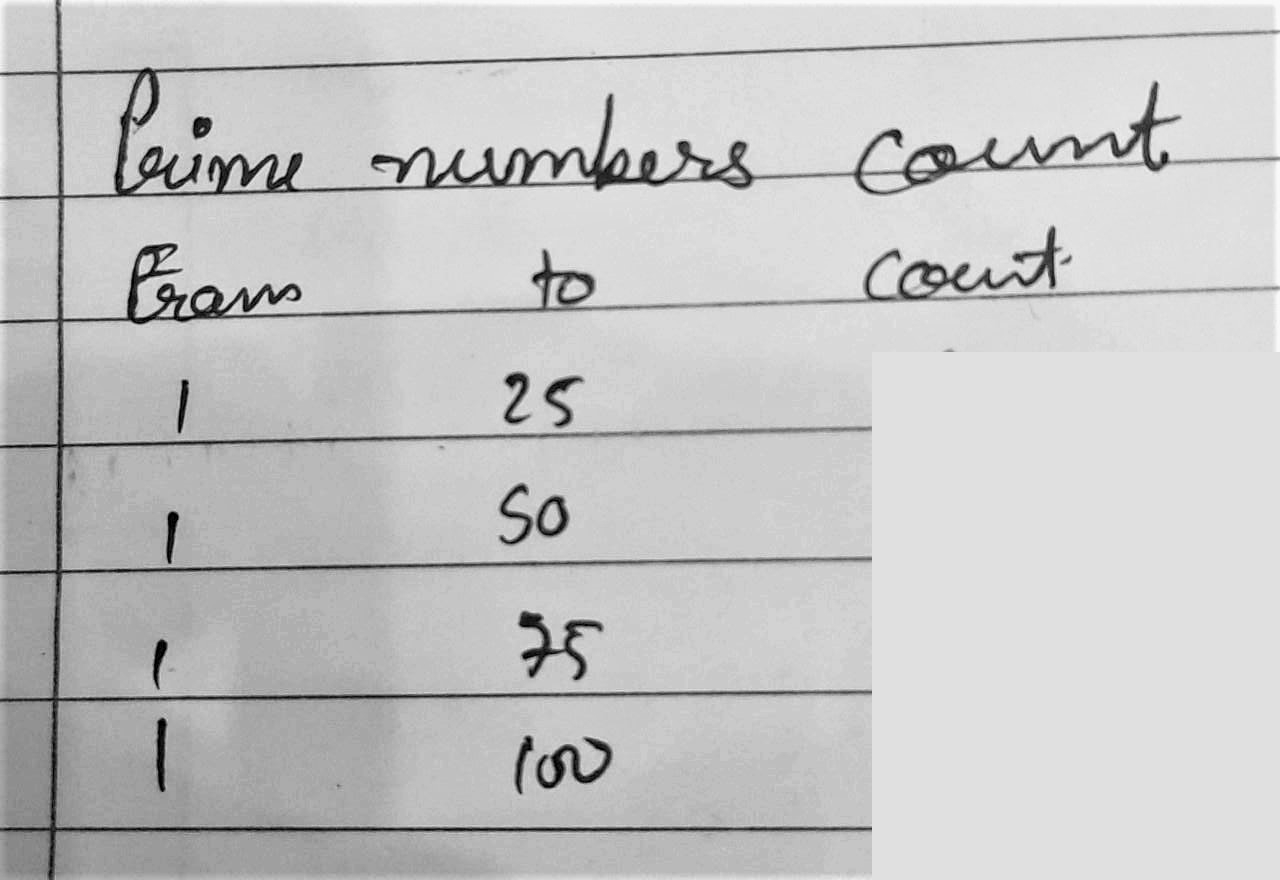 Prime numbers count
From to count
1 25
1 50
1 75
1 100